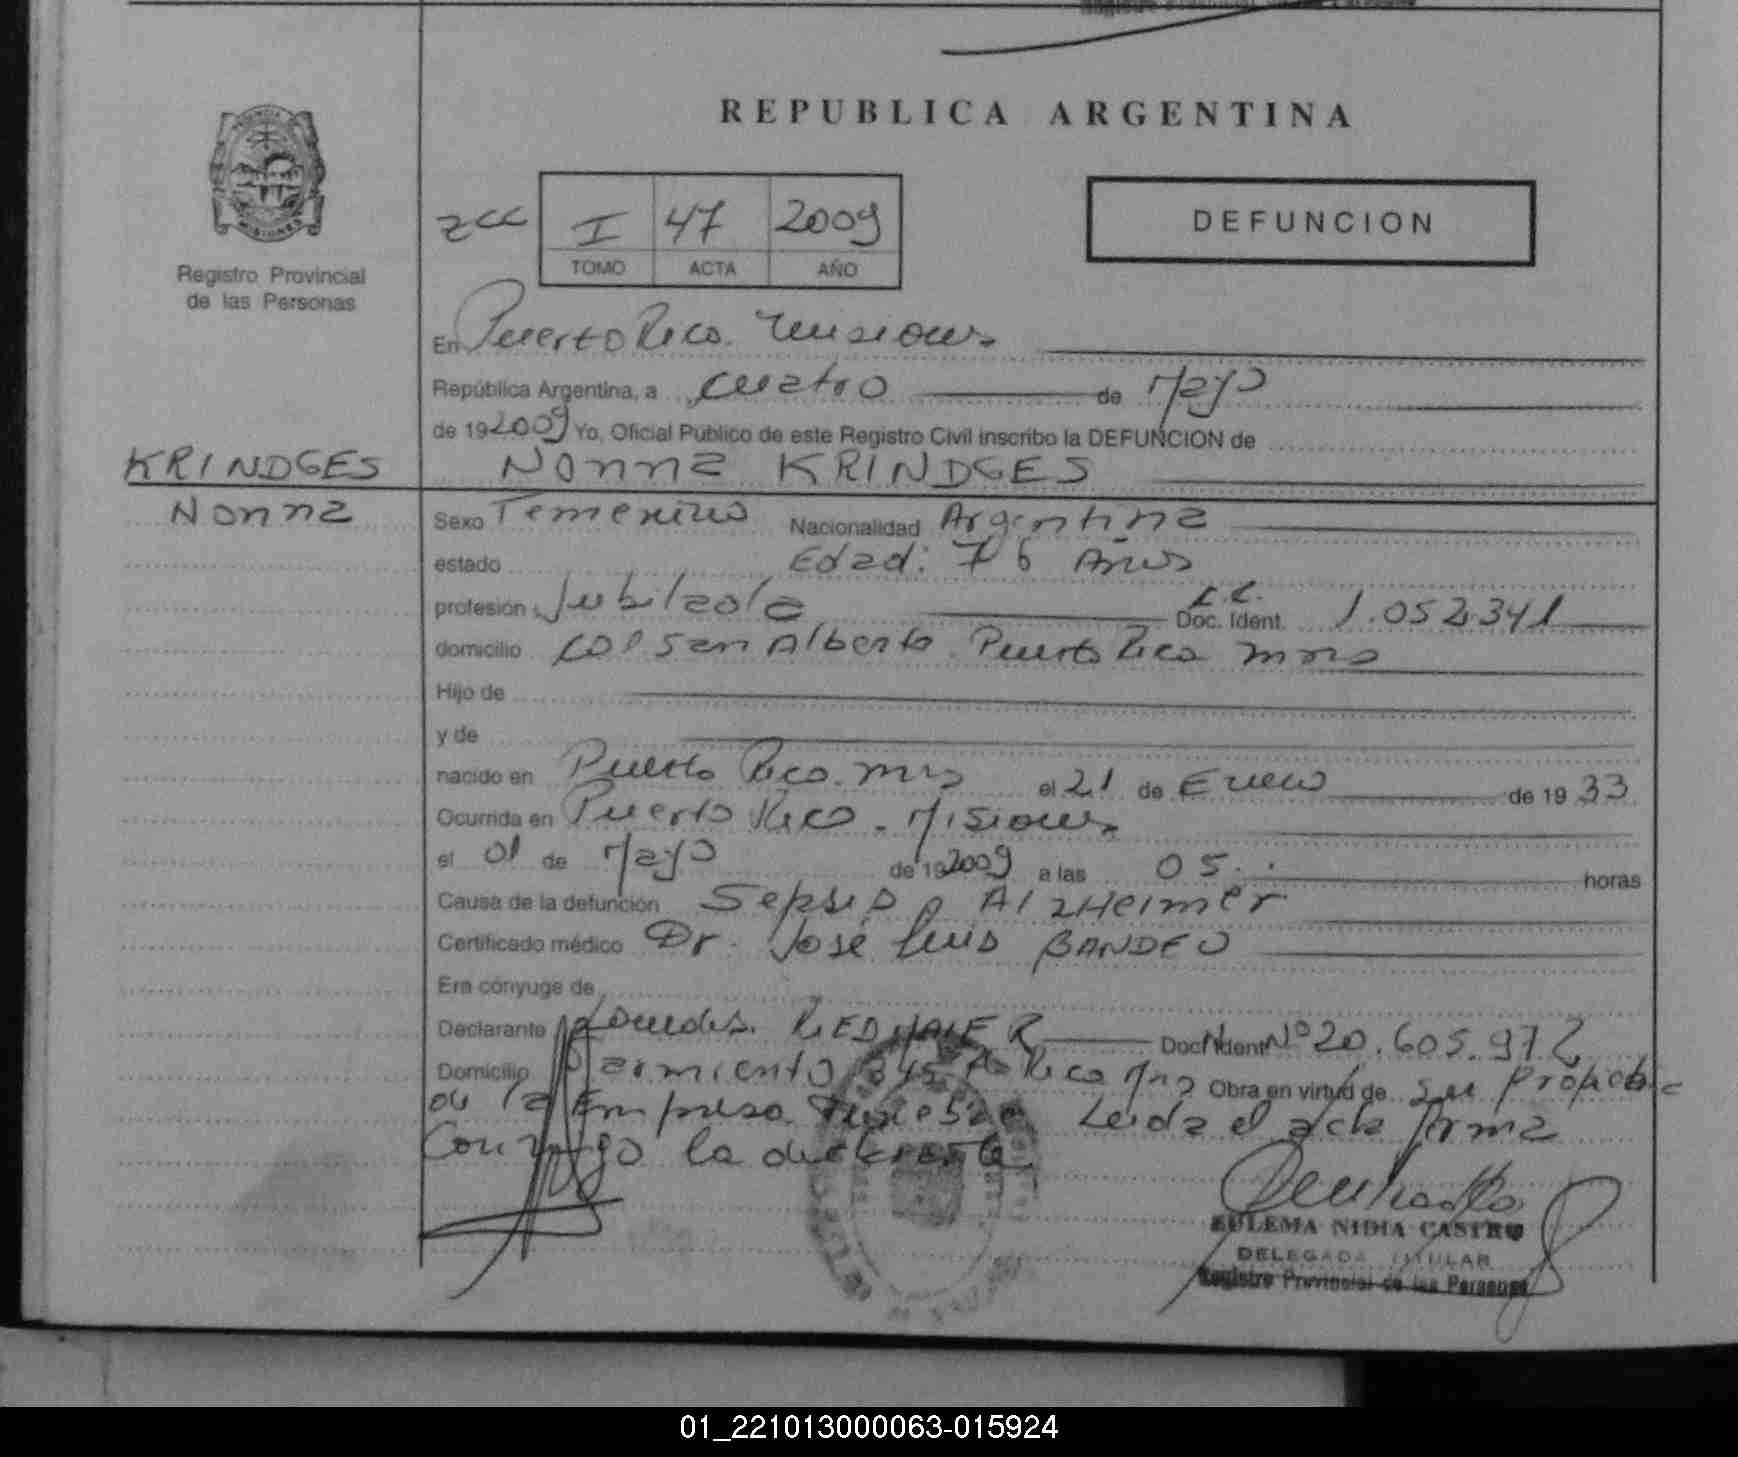 REPUBLICA ARGENTINA
I 47 2009
TOMO ACTA AÑO
DEFUNCION
Registro Provincial
de las Personas
En Puerto Rico. Misiones
República Argentina, a cuatro de Mayo
de 192009 Yo, Oficial Público de este Registro Civil inscribo la DEFUNCION de
KRINDGES
Nonna
Nonna KRINDGES
Sexo Femenino Nacionalidad Argentina
estado Edad: 76 Años
profesión Jubilada L.C. Doc. Ident. 1.052.341
domicilio Col San Alberto. Puerto Rico Mnes
Hijo de
y de
nacido en Puerto Rico. Mnes el 21 de Enero de 19 33
Ocurrida en Puerto Rico. Misiones
el 01 de Mayo de 192009 a las 05. horas
Causa de la defunción Sepsis, Alzheimer
Certificado médico Dr. José Luis BANDEO
Era cónyuge de
Declarante Lourdes Doc. Ident Nº 20.605.972
Domicilio Sarmiento 345 Pto Rico Mnes Obra en virtud de ser Propietaria
de la Empresa Leida el acta firma
Conmigo la declarante
ZULEMA NIDIA CASTRO
DELEGADA TITULAR
Registro Provincial de las Personas
01_221013000063-015924